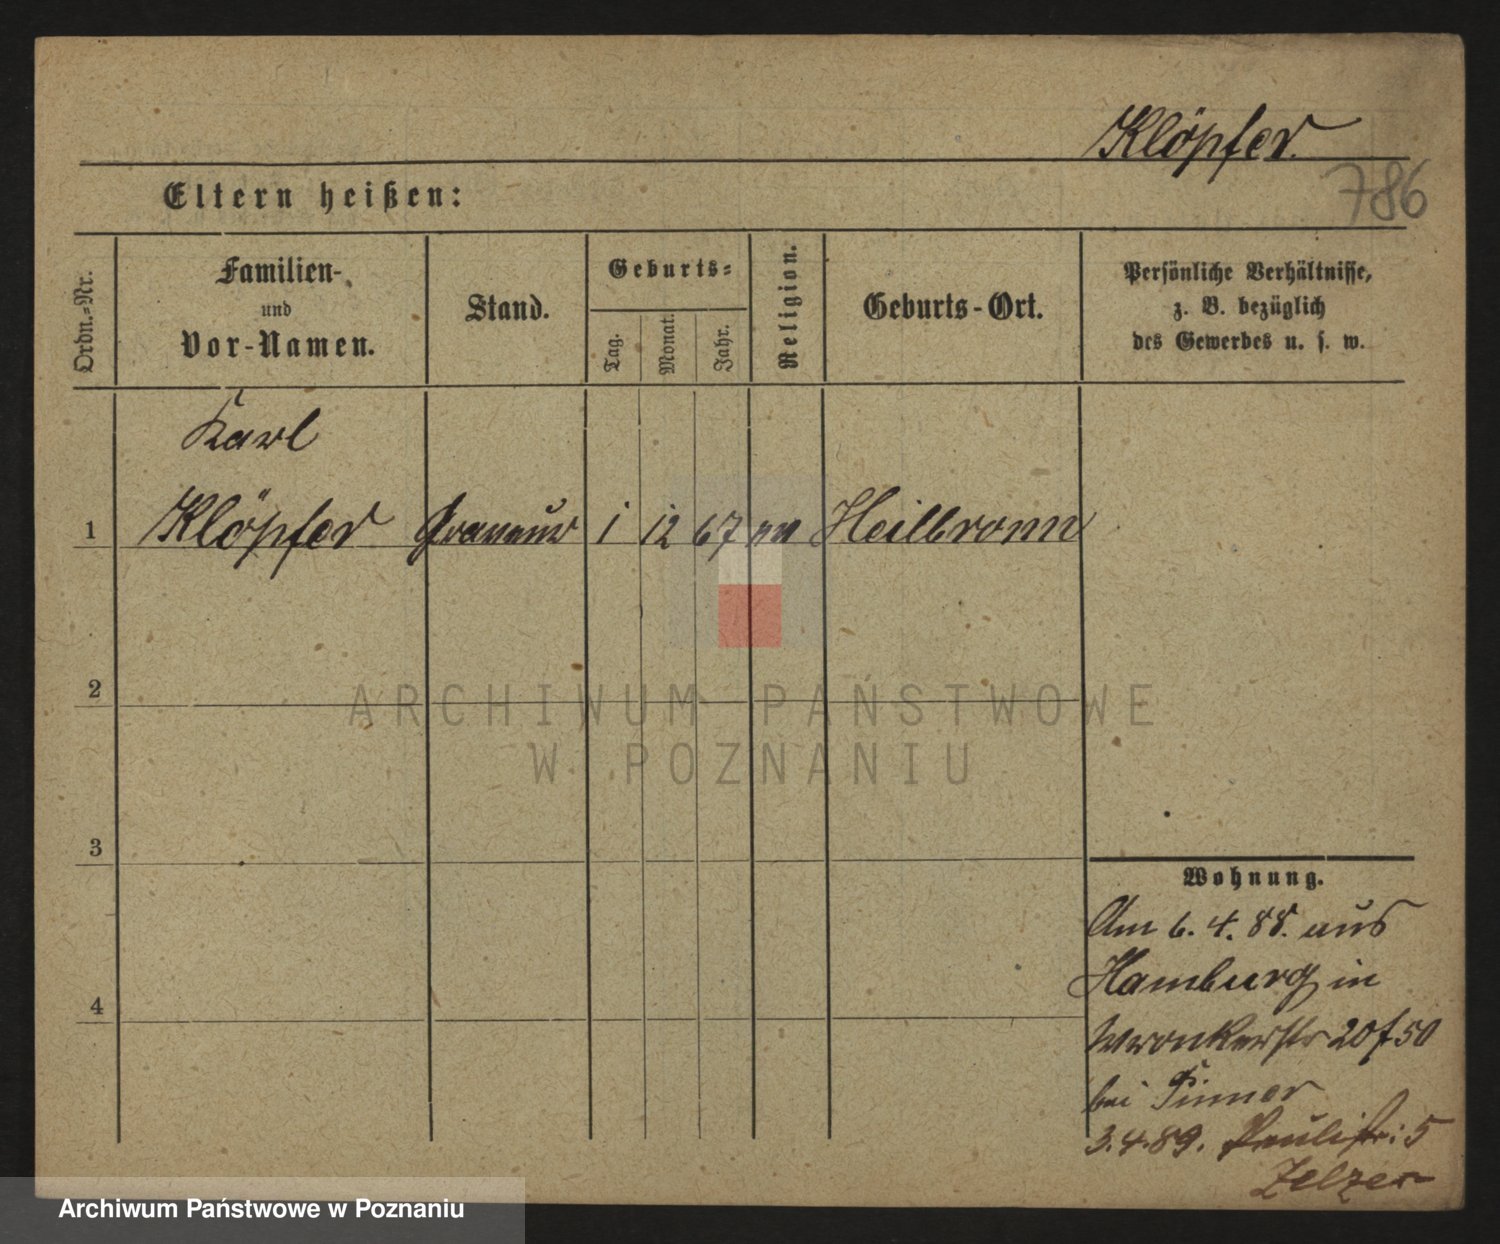 Klöpfer.
786
Eltern heißen:
Ordn.-Nr.
Familien-
und
Vor-Namen.
Stand.
Geburts-
Tag.
Monat.
Jahr.
Religion.
Geburts-Ort.
Persönliche Verhältnisse,
z. B. bezüglich
des Gewerbes u. s. w.
Karl
1 Klöpfer Graveur 1 12 67 Heilbronn
2
3
4
Wohnung.
Am 6. 4. 88. aus
Hamburg in
Wronkerstr 20
bei Pinner
3.4.89. Paulistr: 5
Zelzer
ARCHIWUM PAŃSTWOWE
W POZNANIU
Archiwum Państwowe w Poznaniu